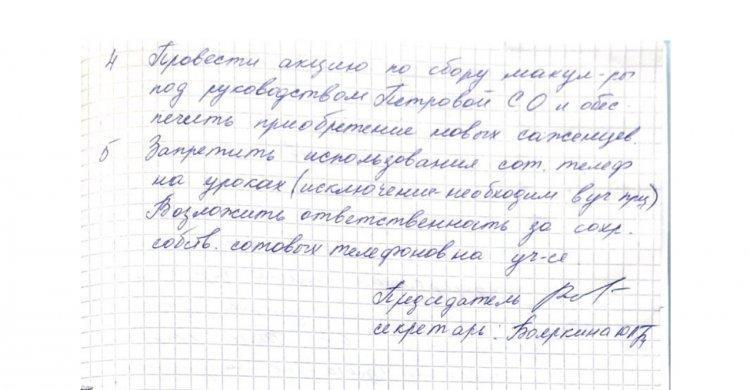 4 Провести акцию по сбору макул-ры
под руководством Петровой С О и обес
печить приобретение новых саженцев.
5 Запретить использования сот. телеф
на уроках (исключение-необходим в уч прц)
Возложить ответственность за сохр.
собств. сотовых телефонов на уч-ся
Председатель
секретарь: Бояркина